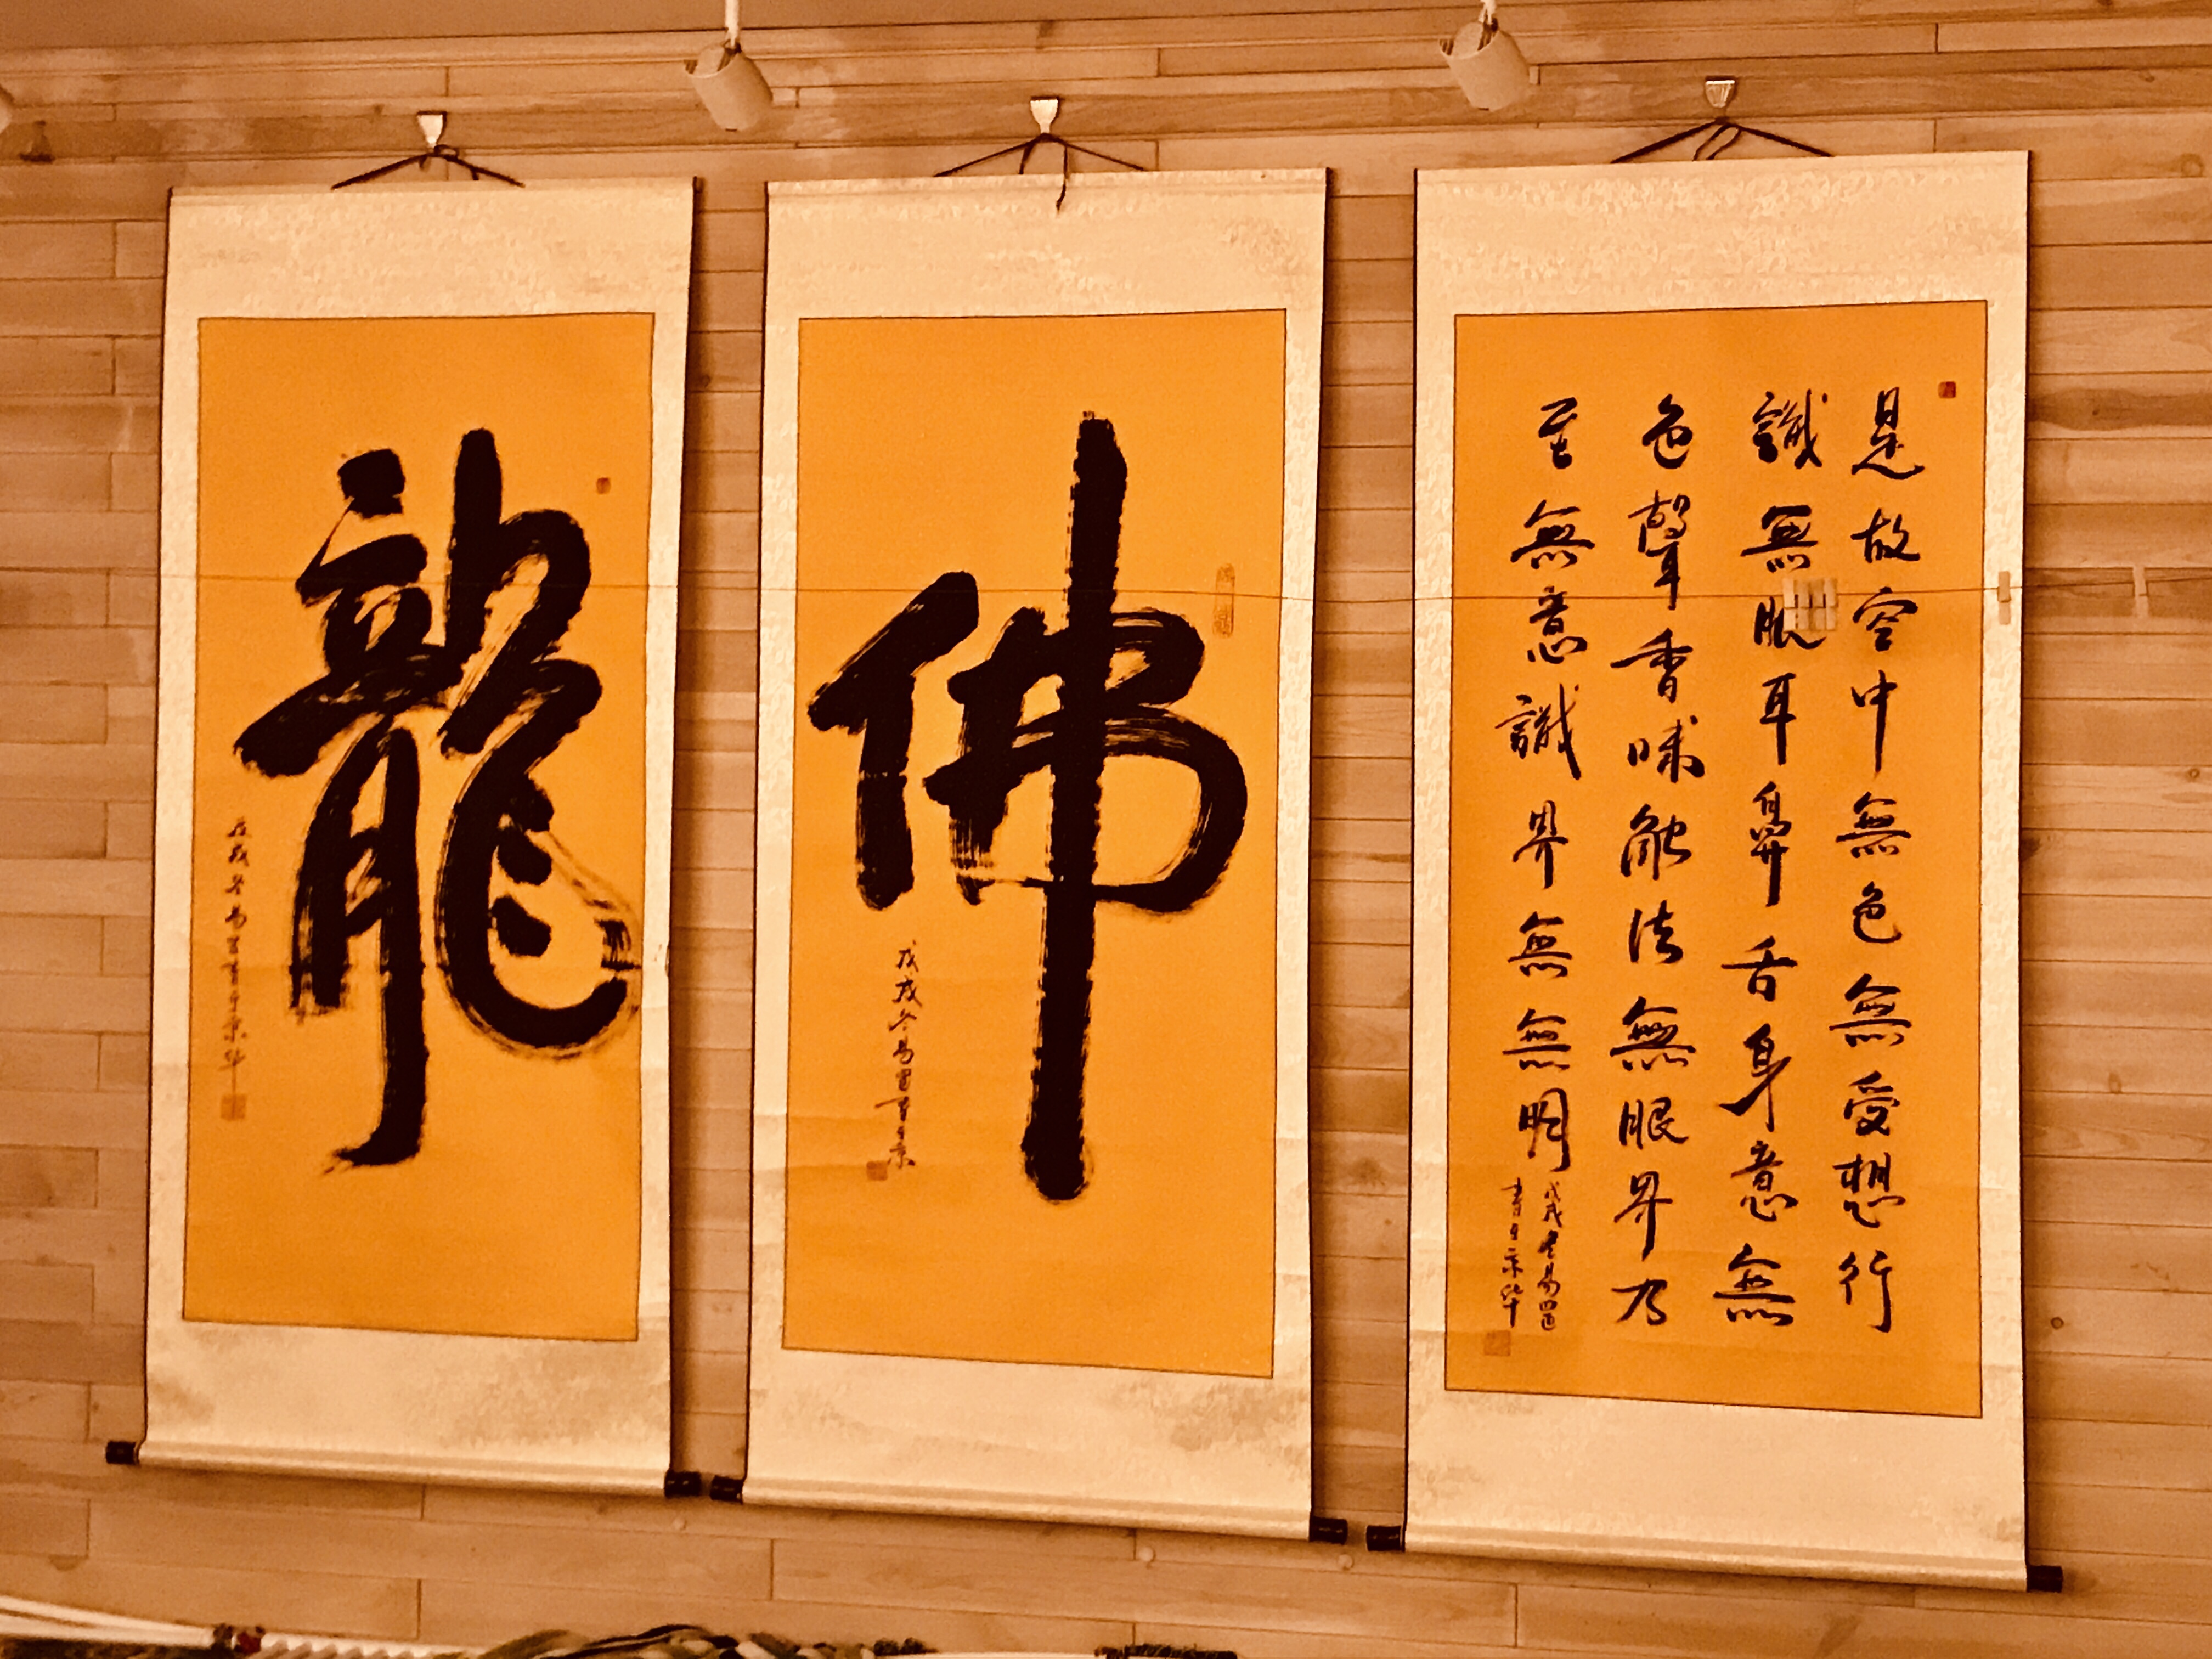 龍
戊戌冬書于京華
佛
戊戌冬書于京
是故空中無色無受想行
識無眼耳鼻舌身意無
色聲香味觸法無眼界乃
至無意識界無無明
戊戌冬
書于京華